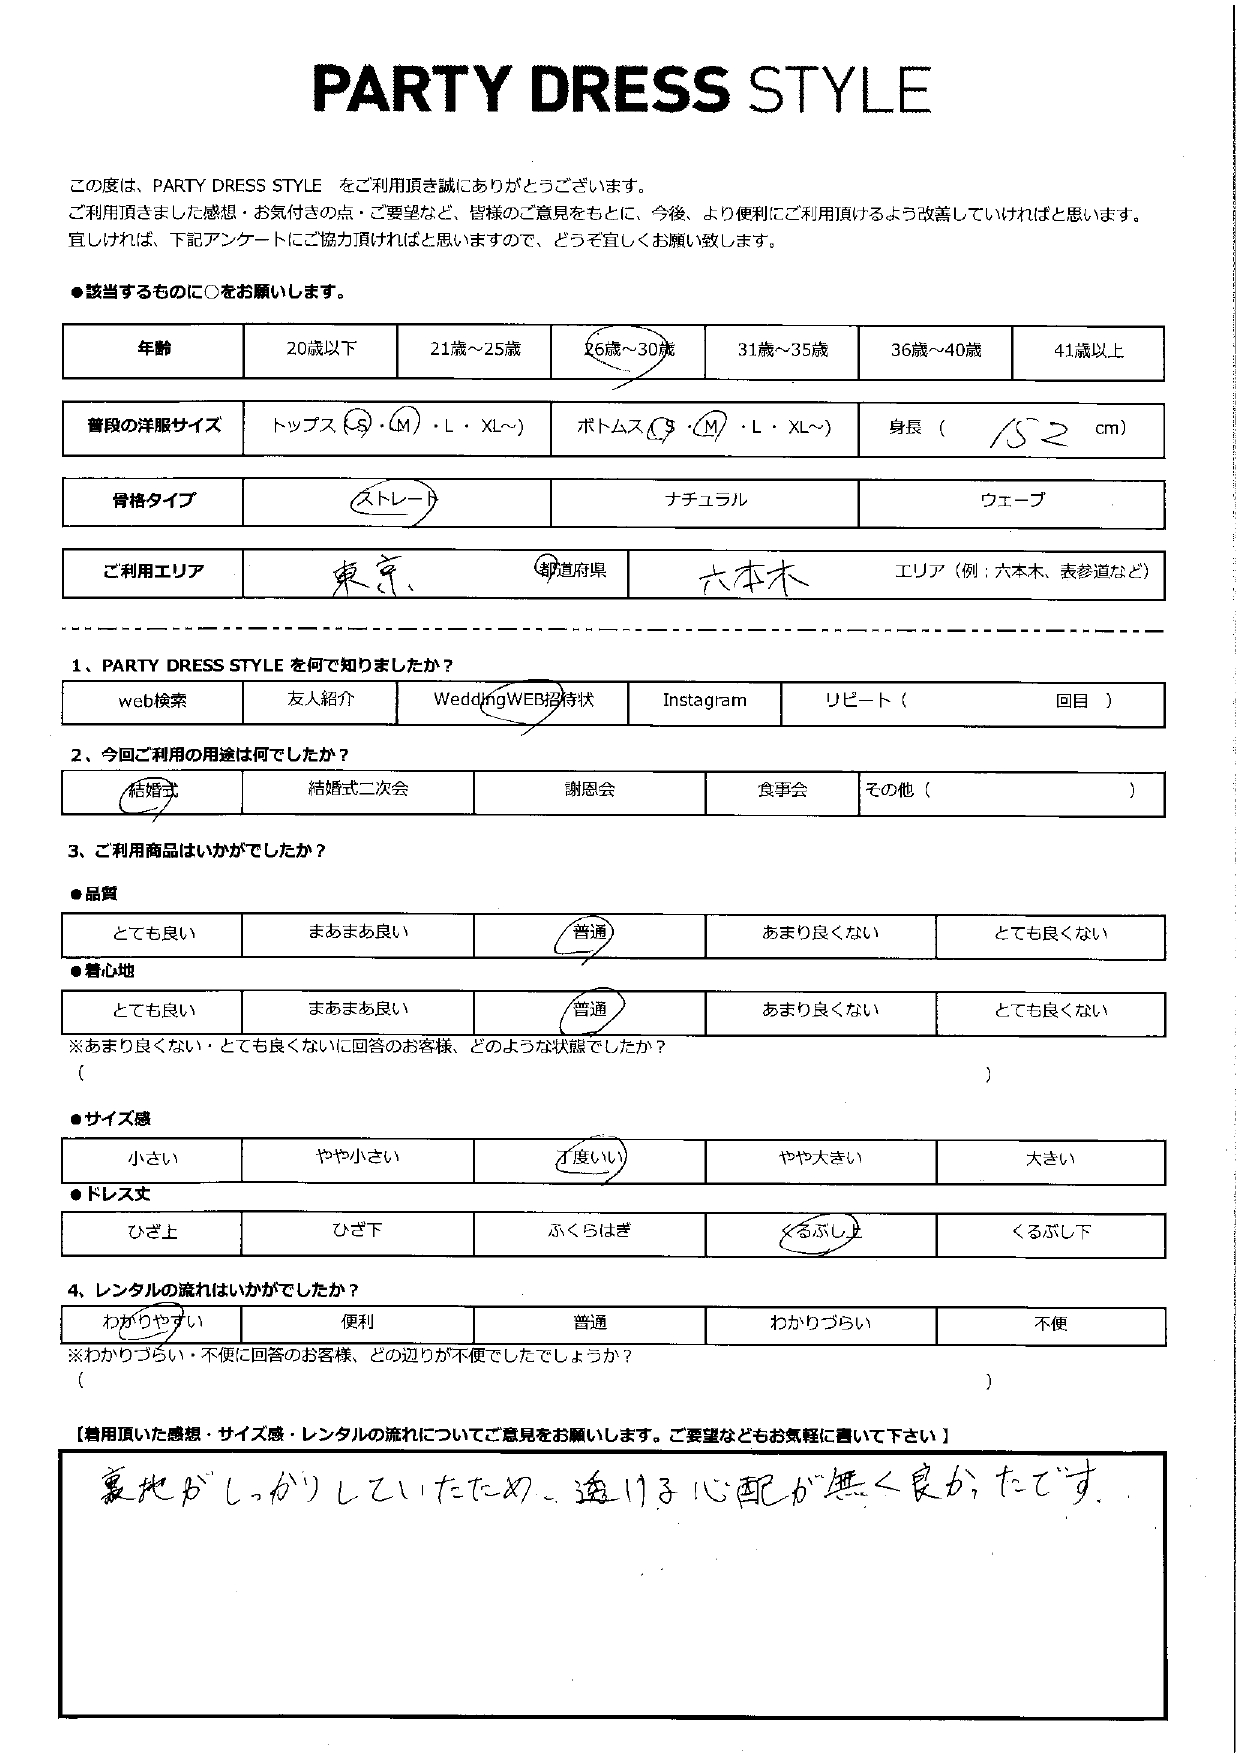 PARTY DRESS STYLE
この度は、PARTY DRESS STYLE をご利用頂き誠にありがとうございます。
ご利用頂きました感想・お気付きの点・ご要望など、皆様のご意見をもとに、今後、より便利にご利用頂けるよう改善していければと思います。
宜しければ、下記アンケートにご協力頂ければと思いますので、どうぞ宜しくお願い致します。
●該当するものに○をお願いします。
年齢 20歳以下 21歳～25歳 26歳～30歳 31歳～35歳 36歳～40歳 41歳以上
普段の洋服サイズ トップス(S・M・L・XL～) ボトムス(S・M・L・XL～) 身長 ( 152 cm)
骨格タイプ ストレート ナチュラル ウェーブ
ご利用エリア 東京、 都道府県 六本木 エリア（例；六本木、表参道など）
1、PARTY DRESS STYLE を何で知りましたか？
web検索 友人紹介 WeddingWEB招待状 Instagram リピート（ 回目 ）
2、今回ご利用の用途は何でしたか？
結婚式 結婚式二次会 謝恩会 食事会 その他（ ）
3、ご利用商品はいかがでしたか？
●品質
とても良い まあまあ良い 普通 あまり良くない とても良くない
●着心地
とても良い まあまあ良い 普通 あまり良くない とても良くない
※あまり良くない・とても良くないに回答のお客様、どのような状態でしたか？
（ ）
●サイズ感
小さい やや小さい 丁度いい やや大きい 大きい
●ドレス丈
ひざ上 ひざ下 ふくらはぎ くるぶし上 くるぶし下
4、レンタルの流れはいかがでしたか？
わかりやすい 便利 普通 わかりづらい 不便
※わかりづらい・不便に回答のお客様、どの辺りが不便でしたでしょうか？
（ ）
【着用頂いた感想・サイズ感・レンタルの流れについてご意見をお願いします。ご要望などもお気軽に書いて下さい】
裏地がしっかりしていたため、透ける心配が無く良かったです.